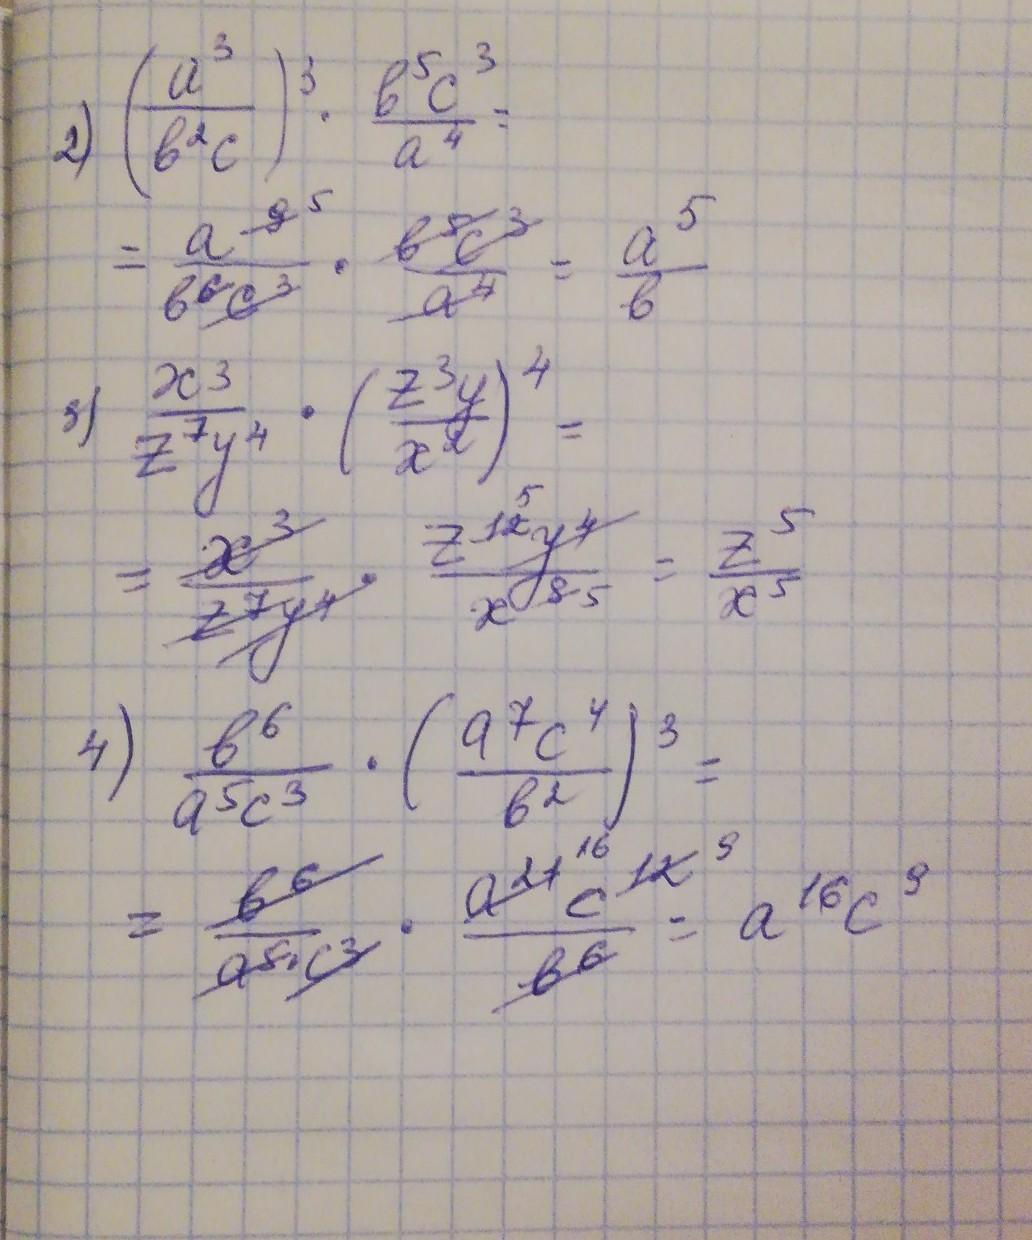 2) (a³/b²c)³ · b⁵c³/a⁴ =
= a⁹ ⁵/b⁶c³ · b⁵c³/a⁴ = a⁵/b
3) x³/z⁷y⁴ · (z³y/x²)⁴ =
= x³/z⁷y⁴ · z¹² ⁵y⁴/x⁸ ⁵ = z⁵/x⁵
4) b⁶/a⁵c³ · (a⁷c⁴/b²)³ =
= b⁶/a⁵·c³ · a²¹ ¹⁶c¹² ⁹/b⁶ = a¹⁶c⁹